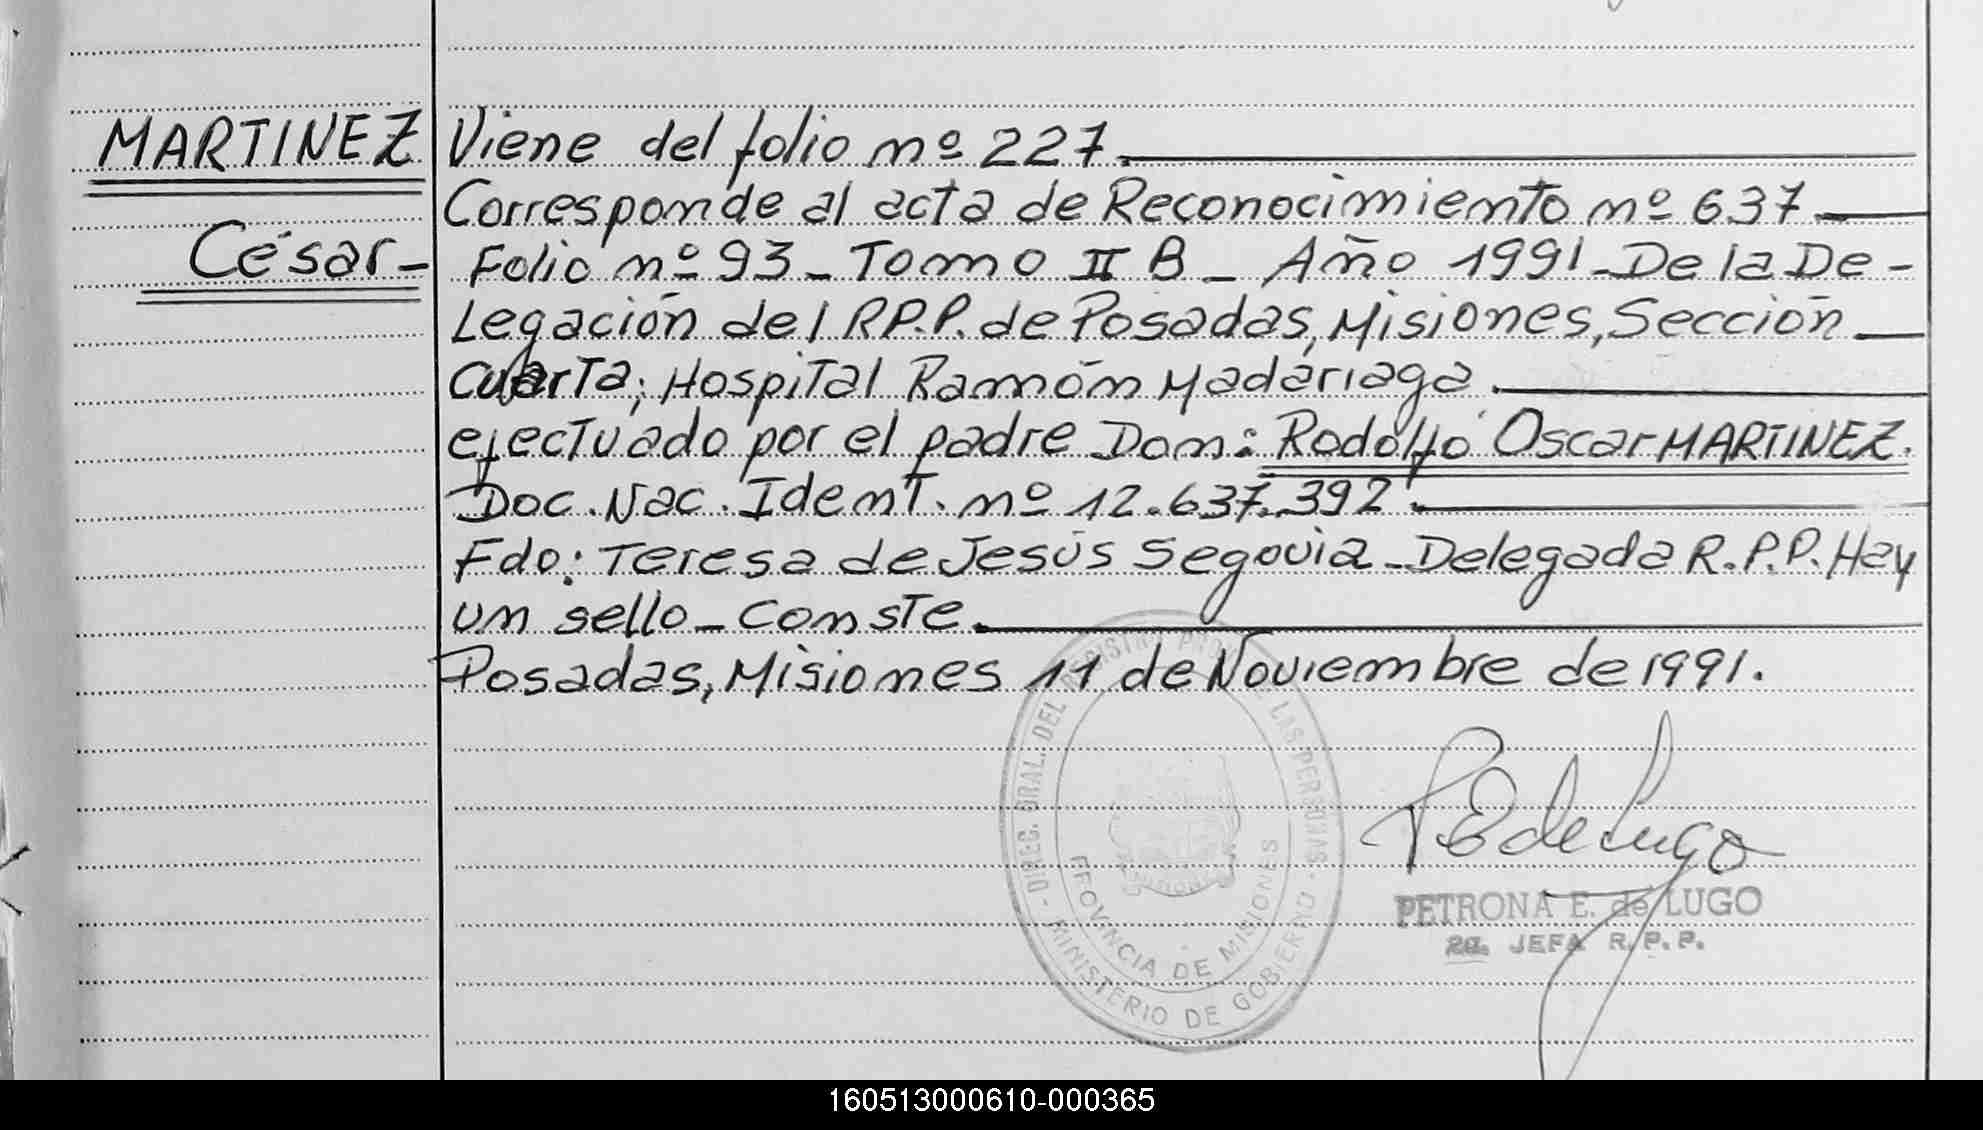 MARTINEZ
César-
Viene del folio nº 227.
Corresponde al acta de Reconocimiento nº 637
Folio nº 93 - Tomo II B - Año 1991 - De la De-
legación del R.P.P. de Posadas, Misiones, Sección
Cuarta; Hospital Ramón Madariaga.
efectuado por el padre Don: Rodolfo Oscar MARTINEZ.
Doc. Nac. Ident. nº 12.637.392.
Fdo: Teresa de Jesús Segovia - Delegada R.P.P. Hay
un sello - Conste.
Posadas, Misiones 11 de Noviembre de 1991.
DIREC. GRAL. DEL REGISTRO PROV. DE LAS PERSONAS
PROVINCIA DE MISIONES
MINISTERIO DE GOBIERNO
P E de Lugo
PETRONA E. de LUGO
2a. JEFA R.P.P.
160513000610-000365